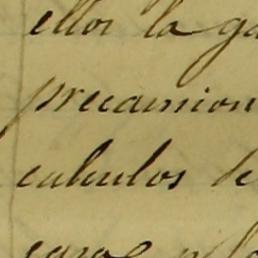 ellos la ga
precaucion
calculos de